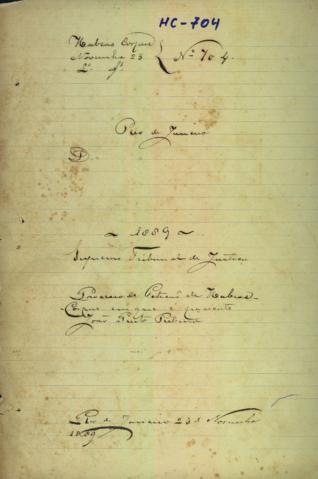 HC-704
Habeas Corpus
Novembro 23
Nº 704.
Rio de Janeiro
~ 1889 ~
Supremo Tribunal de Justiça
Processo de Petição de Habeas-
Corpus em que é paciente
João Pinto
Rio de Janeiro 23 de Novembro
1889